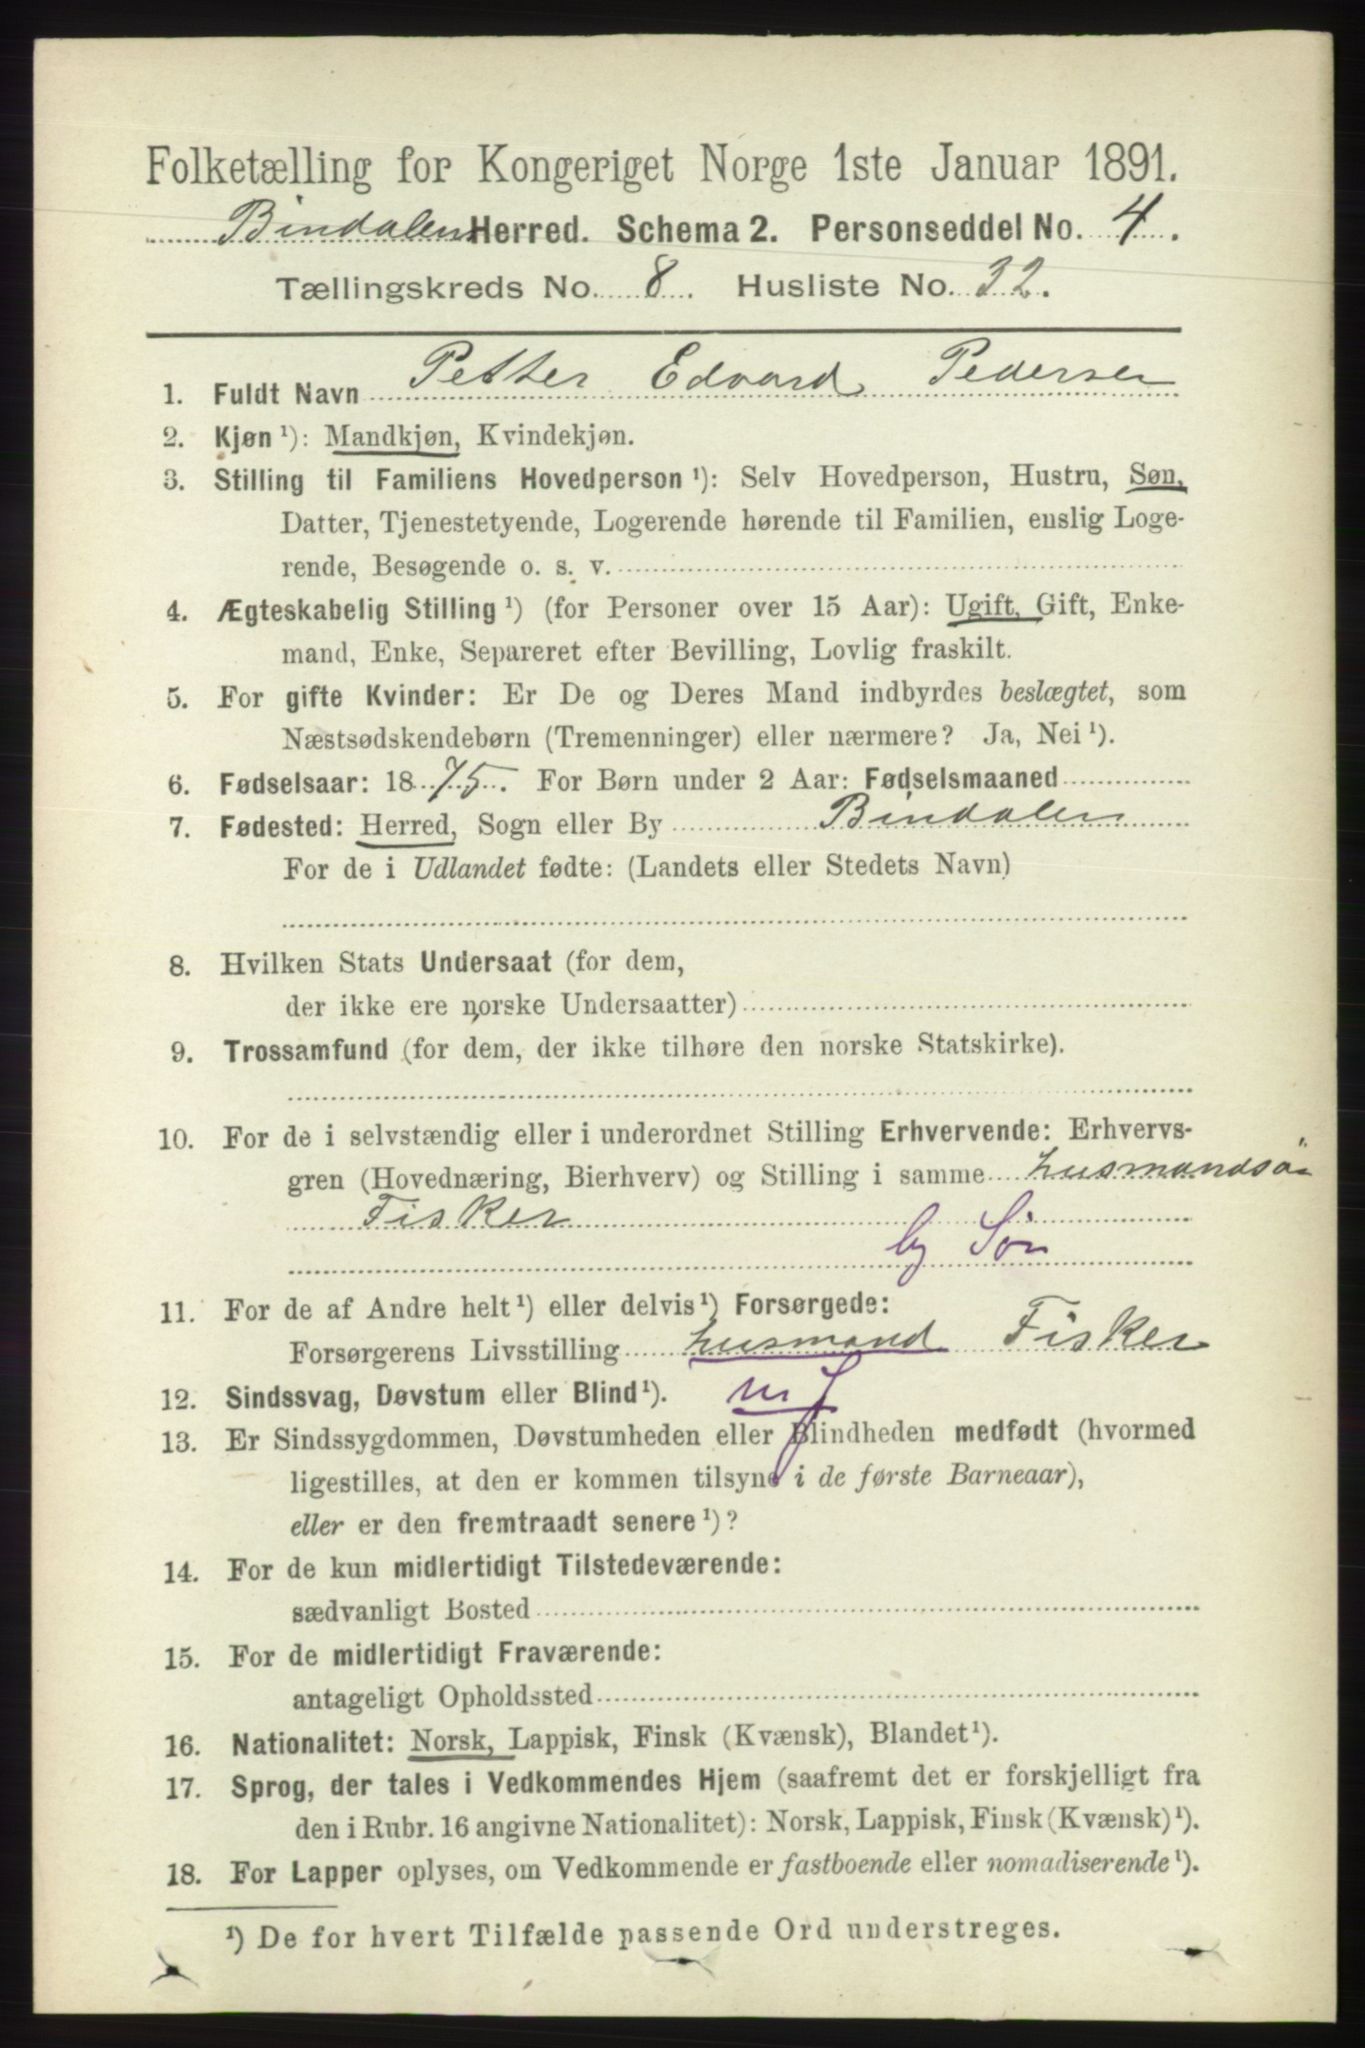 Folketælling for Kongeriget Norge 1ste Januar 1891.
Bindalen Herred. Schema 2. Personseddel No. 4.
Tællingskreds No. 8. Husliste No. 32.
1. Fuldt Navn Petter Edvard Pedersen
2. Kjøn ¹): Mandkjøn, Kvindekjøn.
3. Stilling til Familiens Hovedperson ¹): Selv Hovedperson, Hustru, Søn,
Datter, Tjenestetyende, Logerende hørende til Familien, enslig Loge-
rende, Besøgende o. s. v.
4. Ægteskabelig Stilling ¹) (for Personer over 15 Aar): Ugift, Gift, Enke-
mand, Enke, Separeret efter Bevilling, Lovlig fraskilt.
5. For gifte Kvinder: Er De og Deres Mand indbyrdes beslægtet, som
Næstsødskendebørn (Tremenninger) eller nærmere? Ja, Nei ¹).
6. Fødselsaar: 1875. For Børn under 2 Aar: Fødselsmaaned
7. Fødested: Herred, Sogn eller By Bindalen
For de i Udlandet fødte: (Landets eller Stedets Navn)
8. Hvilken Stats Undersaat (for dem,
der ikke ere norske Undersaatter)
9. Trossamfund (for dem, der ikke tilhøre den norske Statskirke).
10. For de i selvstændig eller i underordnet Stilling Erhvervende: Erhvervs-
gren (Hovednæring, Bierhverv) og Stilling i samme husmandsön
Fisker
by Sön
11. For de af Andre helt ¹) eller delvis ¹) Forsørgede:
Forsørgerens Livsstilling husmand Fisker
12. Sindssvag, Døvstum eller Blind ¹).
13. Er Sindssygdommen, Døvstumheden eller Blindheden medfødt (hvormed
ligestilles, at den er kommen tilsyne i de første Barneaar),
eller er den fremtraadt senere ¹)?
14. For de kun midlertidigt Tilstedeværende:
sædvanligt Bosted
15. For de midlertidigt Fraværende:
antageligt Opholdssted
16. Nationalitet: Norsk, Lappisk, Finsk (Kvænsk), Blandet ¹).
17. Sprog, der tales i Vedkommendes Hjem (saafremt det er forskjelligt fra
den i Rubr. 16 angivne Nationalitet): Norsk, Lappisk, Finsk (Kvænsk) ¹).
18. For Lapper oplyses, om Vedkommende er fastboende eller nomadiserende ¹).
¹) De for hvert Tilfælde passende Ord understreges.